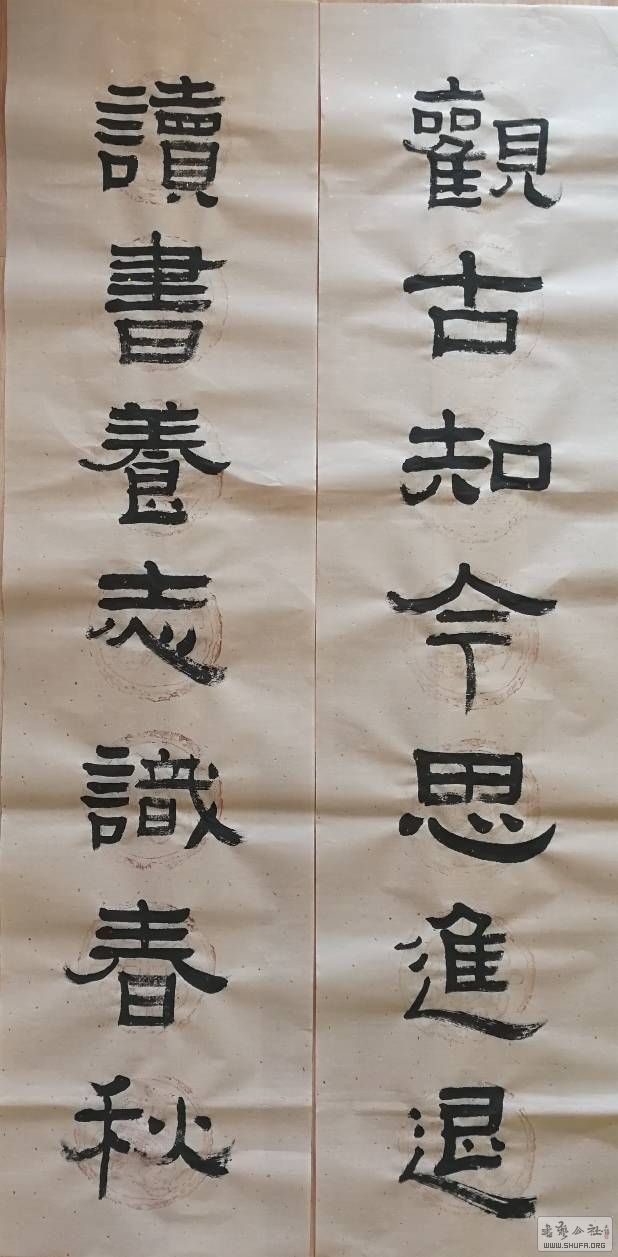 觀古知今思進退
讀書養志識春秋
書藝公社
WWW.SHUFA.ORG